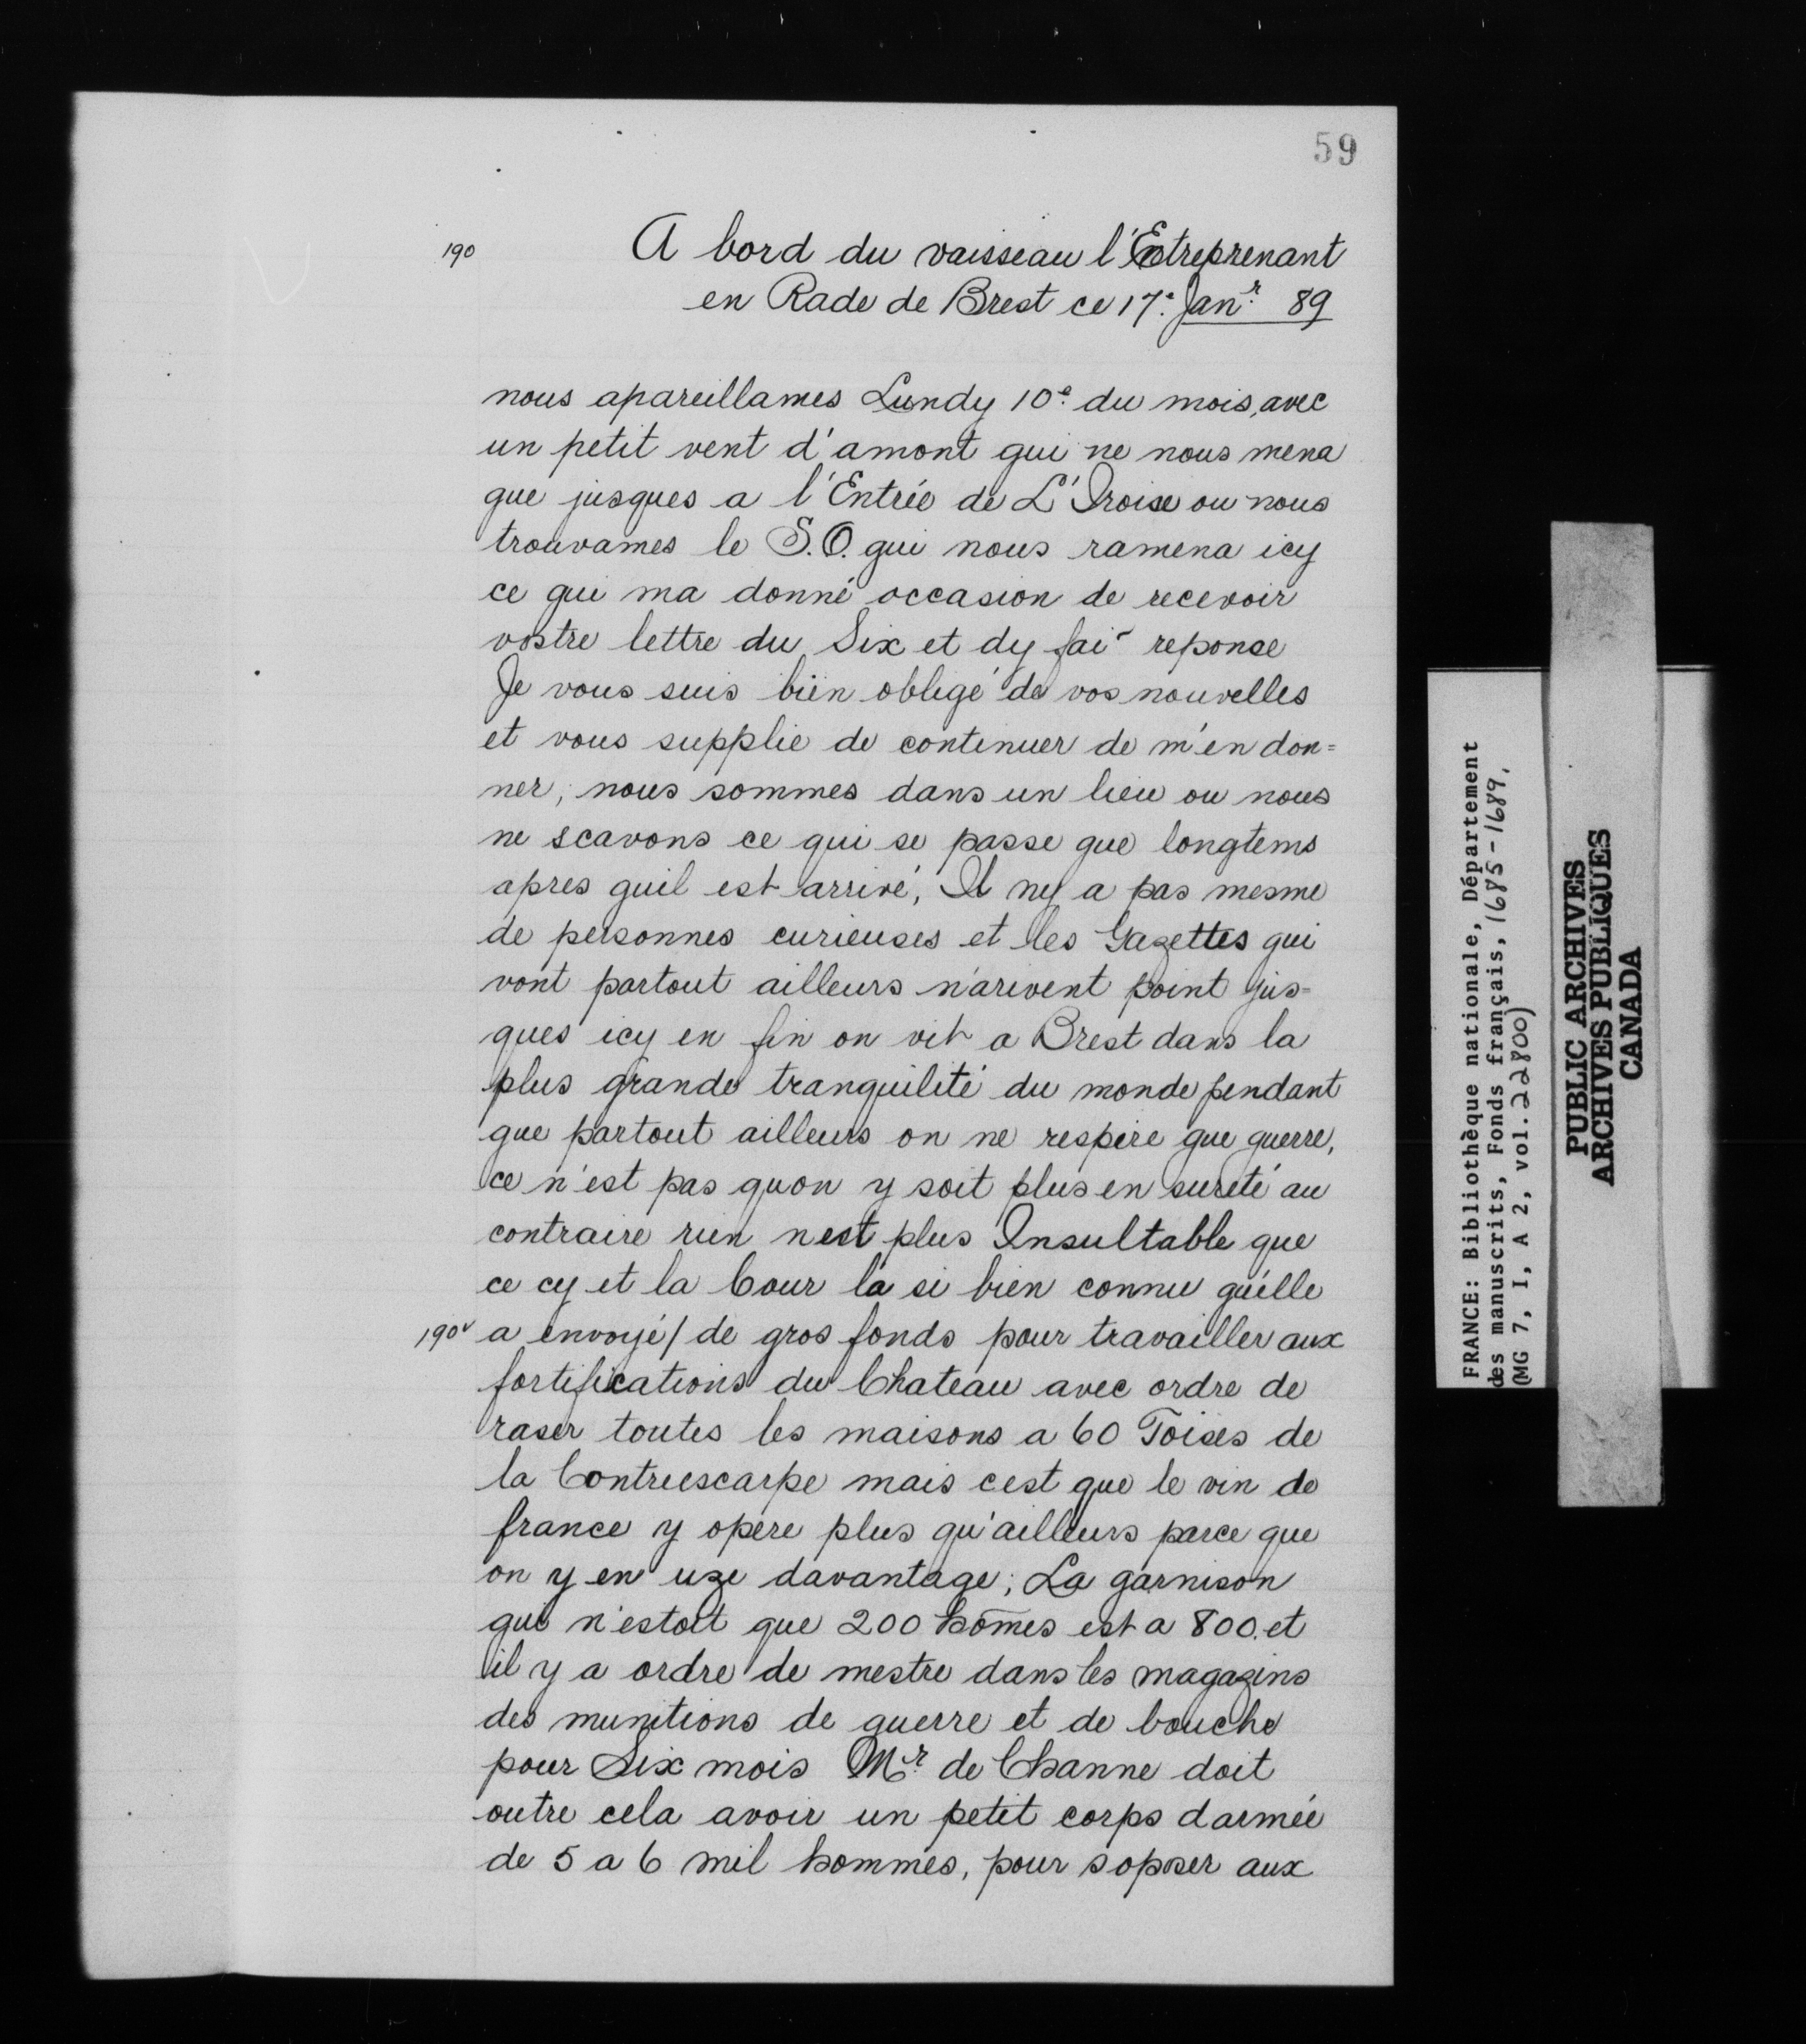 59
190
A bord du vaisseau l'Entreprenant
en Rade de Brest ce 17.e Janr. 89
nous apareillames Lundy 10e. du mois, avec
un petit vent d'amont qui ne nous mena
que jusques a l'Entrée de L'Iroise ou nous
trouvames le S.O. qui nous ramena icy
ce qui ma donné occasion de recevoir
vostre lettre du Six et dy fair reponse
Je vous suis bien obligé de vos nouvelles
et vous supplie de continuer de m'en don=
ner; nous sommes dans un lieu ou nous
ne scavons ce qui se passe que longtems
apres quil est arrivé, Il ny a pas mesme
de personnes curieuses et les Gazettes qui
vont partout ailleurs n'arivent point jus=
ques icy en fin on vit a Brest dans la
plus grande tranquilité du monde pendant
que partout ailleurs on ne respire que guerre,
ce n'est pas quon y soit plus en sureté au
contraire rien nest plus Insultable que
ce cy et la Cour la si bien connu qu'elle
190v a envoyé / de gros fonds pour travailler aux
fortifications du Chateau avec ordre de
raser toutes les maisons a 60 Toises de
la Contreescarpe mais cest que le vin de
france y opere plus qu'ailleurs parce que
on y en uze davantage; La garnison
qui n'estoit que 200 hom̄es est a 800. et
il y a ordre de mestre dans les magazins
des munitions de guerre et de bouche
pour Six mois Mr. de Channe doit
outre cela avoir un petit corps darmée
de 5 a 6 mil hommes, pour soposer aux
FRANCE: Bibliothèque nationale, Département
des manuscrits, Fonds français, 1685-1689.
(MG 7, I, A 2, vol. 22800)
PUBLIC ARCHIVES
ARCHIVES PUBLIQUES
CANADA